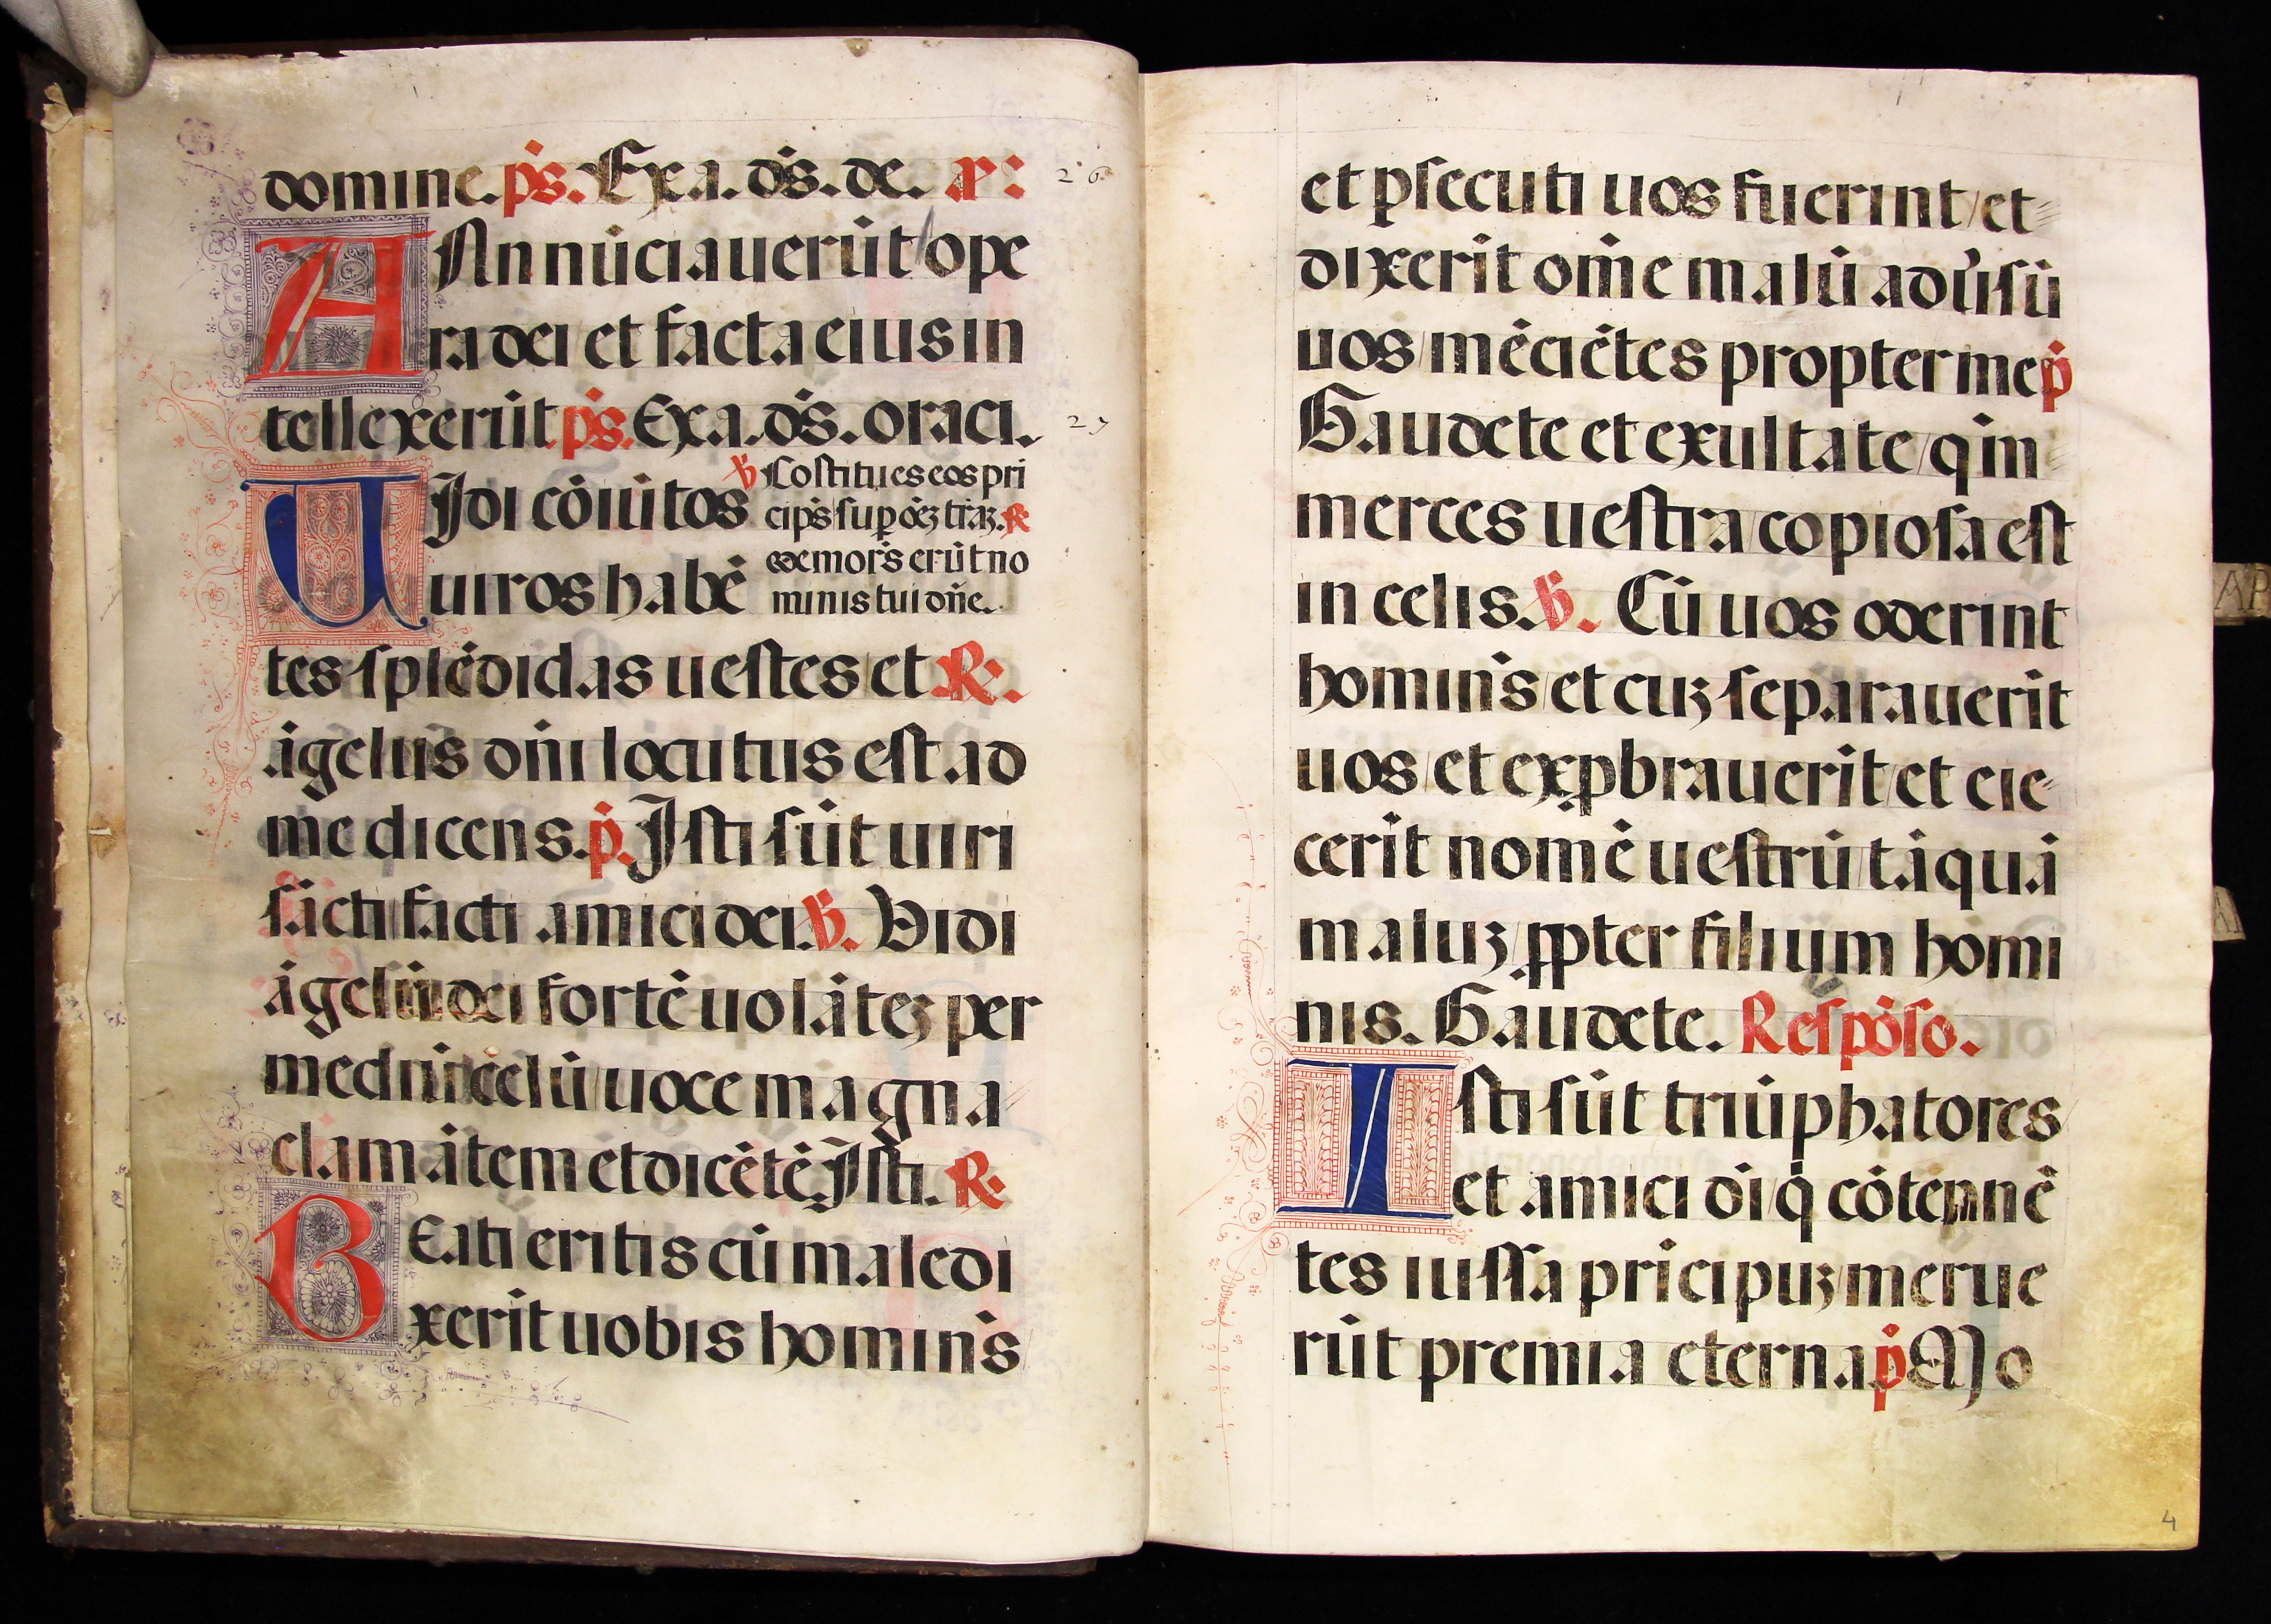 domine. ps̄. Exa. ds̄. de. añ:
26
Annūciauerūt ope
ra dei et facta eius in
tellexerūt ps̄. Exa. ds̄. oraci.
27
UJdi cōiūtos
℣ Costitues eos pri
cip̄s sup oēꝫ trāꝫ. ℟
uiros habē
memor̄s erūt no
minis tui dn̄e.
tes splēdidas uestes et ℟.
āgelus dn̄i locutus est ad
me dicens. p̄. Jsti sūt uiri
sācti facti amici dei. ℣. Vidi
āgelū dei fortē uolāteꝫ per
mediū celū uoce magna
clamātem et dicētē. Jsti. ℟
BEati eritis cū maledi
xerīt uobis homin̄s
et ꝑsecuti uos fuerint et
dixerīt om̄e malū aduʼsū
uos mēciētes propter me p̄
Gaudete et exultate qm̄
merces uestra copiosa est
in celis. ℣. Cū uos oderint
homin̄s et cuꝫ separauerīt
uos et exꝓbrauerīt et eie
cerīt nomē uestrū tāquā
maluꝫ ꝓpter filium homi
nis. Gaudete. Respōso.
Isti sūt triūphatores
et amici di q̄ cōtemnē
tes iussa prīcipuꝫ merue
rūt premia eterna p̄ Mo
AP
4